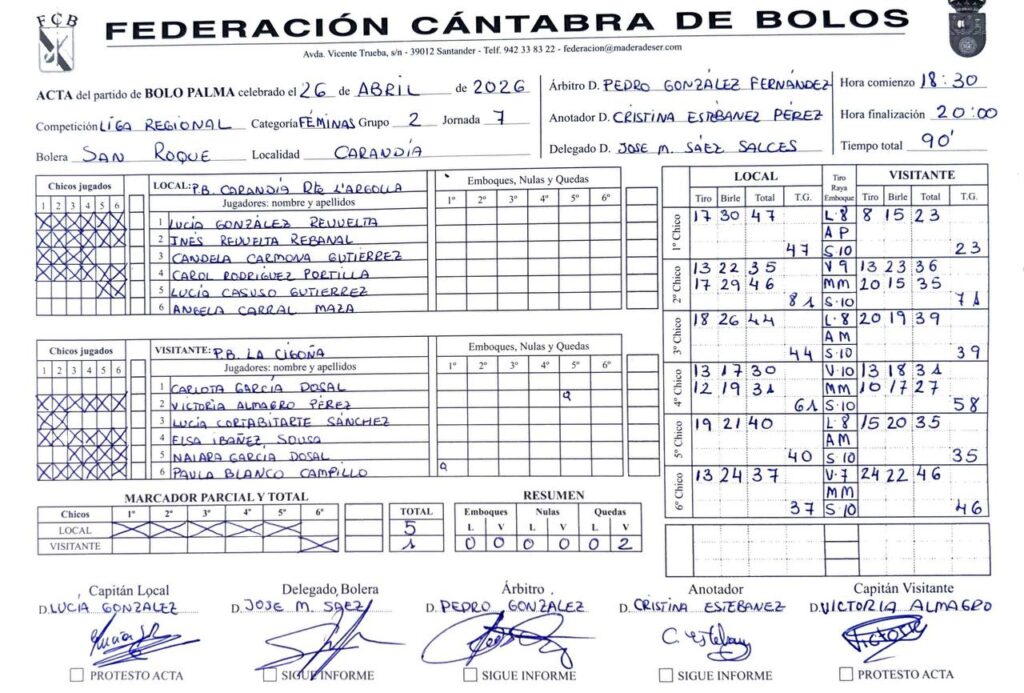 FCB
FEDERACIÓN CÁNTABRA DE BOLOS
Avda. Vicente Trueba, s/n - 39012 Santander - Telf. 942 33 83 22 - federacion@maderadeser.com
ACTA del partido de BOLO PALMA celebrado el 26 de ABRIL de 2026
Competición LIGA REGIONAL Categoría FÉMINAS Grupo 2 Jornada 7
Bolera SAN ROQUE Localidad CARANDÍA
Árbitro D. PEDRO GONZÁLEZ FERNÁNDEZ
Anotador D. CRISTINA ESTÉBANEZ PÉREZ
Delegado D. JOSE M. SÁEZ SALCES
Hora comienzo 18:30
Hora finalización 20:00
Tiempo total 90'
Chicos jugados
1 2 3 4 5 6
LOCAL: P.B. CARANDÍA Rte L'ARGOLLA
Jugadores: nombre y apellidos
Emboques, Nulas y Quedas
1º 2º 3º 4º 5º 6º
1 LUCÍA GONZÁLEZ REVUELTA
2 INÉS REVUELTA REBANAL
3 CANDELA CARMONA GUTIERREZ
4 CAROL RODRÍGUEZ PORTILLA
5 LUCÍA CASUSO GUTIERREZ
6 ANGELA CARRAL MAZA
Chicos jugados
1 2 3 4 5 6
VISITANTE: P.B. LA CIGOÑA
Jugadores: nombre y apellidos
Emboques, Nulas y Quedas
1º 2º 3º 4º 5º 6º
1 CARLOTA GARCÍA DOSAL
2 VICTORIA ALMAGRO PÉREZ Q
3 LUCÍA CORTABITARTE SÁNCHEZ
4 ELSA IBAÑEZ SOUSA
5 NAIARA GARCÍA DOSAL
6 PAULA BLANCO CAMPILLO Q
LOCAL Tiro Raya Emboque VISITANTE
Tiro Birle Total T.G. Tiro Birle Total T.G.
1º Chico 17 30 47 L-8 8 15 23
A P
47 S.10 23
2º Chico 13 22 35 V 9 13 23 36
17 29 46 MM 20 15 35
81 S-10 71
3º Chico 18 26 44 L-8 20 19 39
A M
44 S-10 39
4º Chico 13 17 30 V-10 13 18 31
12 19 31 MM 10 17 27
61 S-10 58
5º Chico 19 21 40 L-8 15 20 35
AM
40 S 10 35
6º Chico 13 24 37 V-7 24 22 46
MM
37 S.10 46
MARCADOR PARCIAL Y TOTAL
Chicos 1º 2º 3º 4º 5º 6º TOTAL
LOCAL 5
VISITANTE 1
RESUMEN
Emboques Nulas Quedas
L V L V L V
0 0 0 0 0 2
Capitán Local
D. LUCÍA GONZALEZ
PROTESTO ACTA
Delegado Bolera
D. JOSE M. SAEZ
SIGUE INFORME
Árbitro
D. PEDRO GONZÁLEZ
SIGUE INFORME
Anotador
D. CRISTINA ESTEBANEZ
C. Esteban
SIGUE INFORME
Capitán Visitante
D. VICTORIA ALMAGRO
Victoria
PROTESTO ACTA